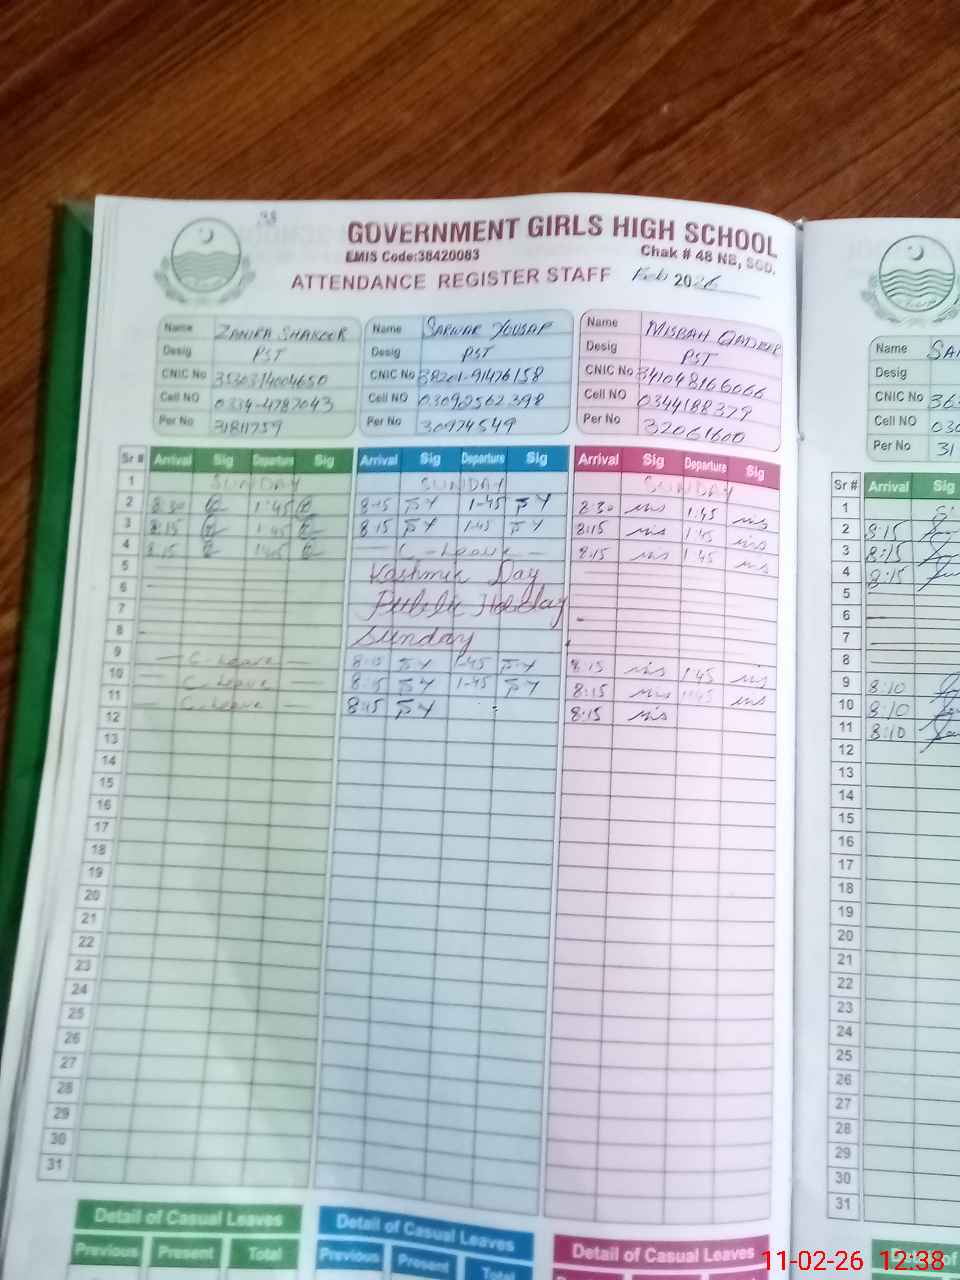 38
GOVERNMENT GIRLS HIGH SCHOOL
EMIS Code:38420083 Chak # 48 NB, SGD.
ATTENDANCE REGISTER STAFF Feb 2026
Name ZAHIRA SHAKOOR Name SARWAR YOUSAF Name MISBAH QADEER Name
Desig PST Desig PST Desig PST Desig
CNIC No 3530314004650 CNIC No 38201-91476158 CNIC No 341048166066 CNIC No
Cell NO 0334-4787043 Cell NO 03090562398 Cell NO 0344188379 Cell NO
Per No 31811759 Per No 30974549 Per No 32061600 Per No 31
Sr # Arrival Sig Departure Sig Arrival Sig Departure Sig Arrival Sig Departure Sig Sr # Arrival Sig
1 SUNDAY SUNDAY SUNDAY 1
2 8:30 1:45 8:15 1-45 8:30 mis 1:45 mis 2 8:15
3 8:15 1:45 8:15 1-45 8:15 mis 1:45 mis 3 8:15
4 8:15 1:45 — C-Leave — 8:15 mis 1:45 mis 4 8:15
5 Kashmir Day 5
6 Public Holiday 6
7 7
8 Sunday 8
9 — C-Leave — 8:10 1-45 8:15 mis 1:45 mis 9 8:10
10 — C-Leave — 8:15 1-45 8:15 mis 1:45 mis 10 8:10
11 — C-Leave — 8:15 8:15 mis 11 8:10
12 12
13 13
14 14
15 15
16 16
17 17
18 18
19 19
20 20
21 21
22 22
23 23
24 24
25 25
26 26
27 27
28 28
29 29
30 30
31 31
Detail of Casual Leaves Detail of Casual Leaves Detail of Casual Leaves
Previous Present Total Previous Present Total
11-02-26 12:38